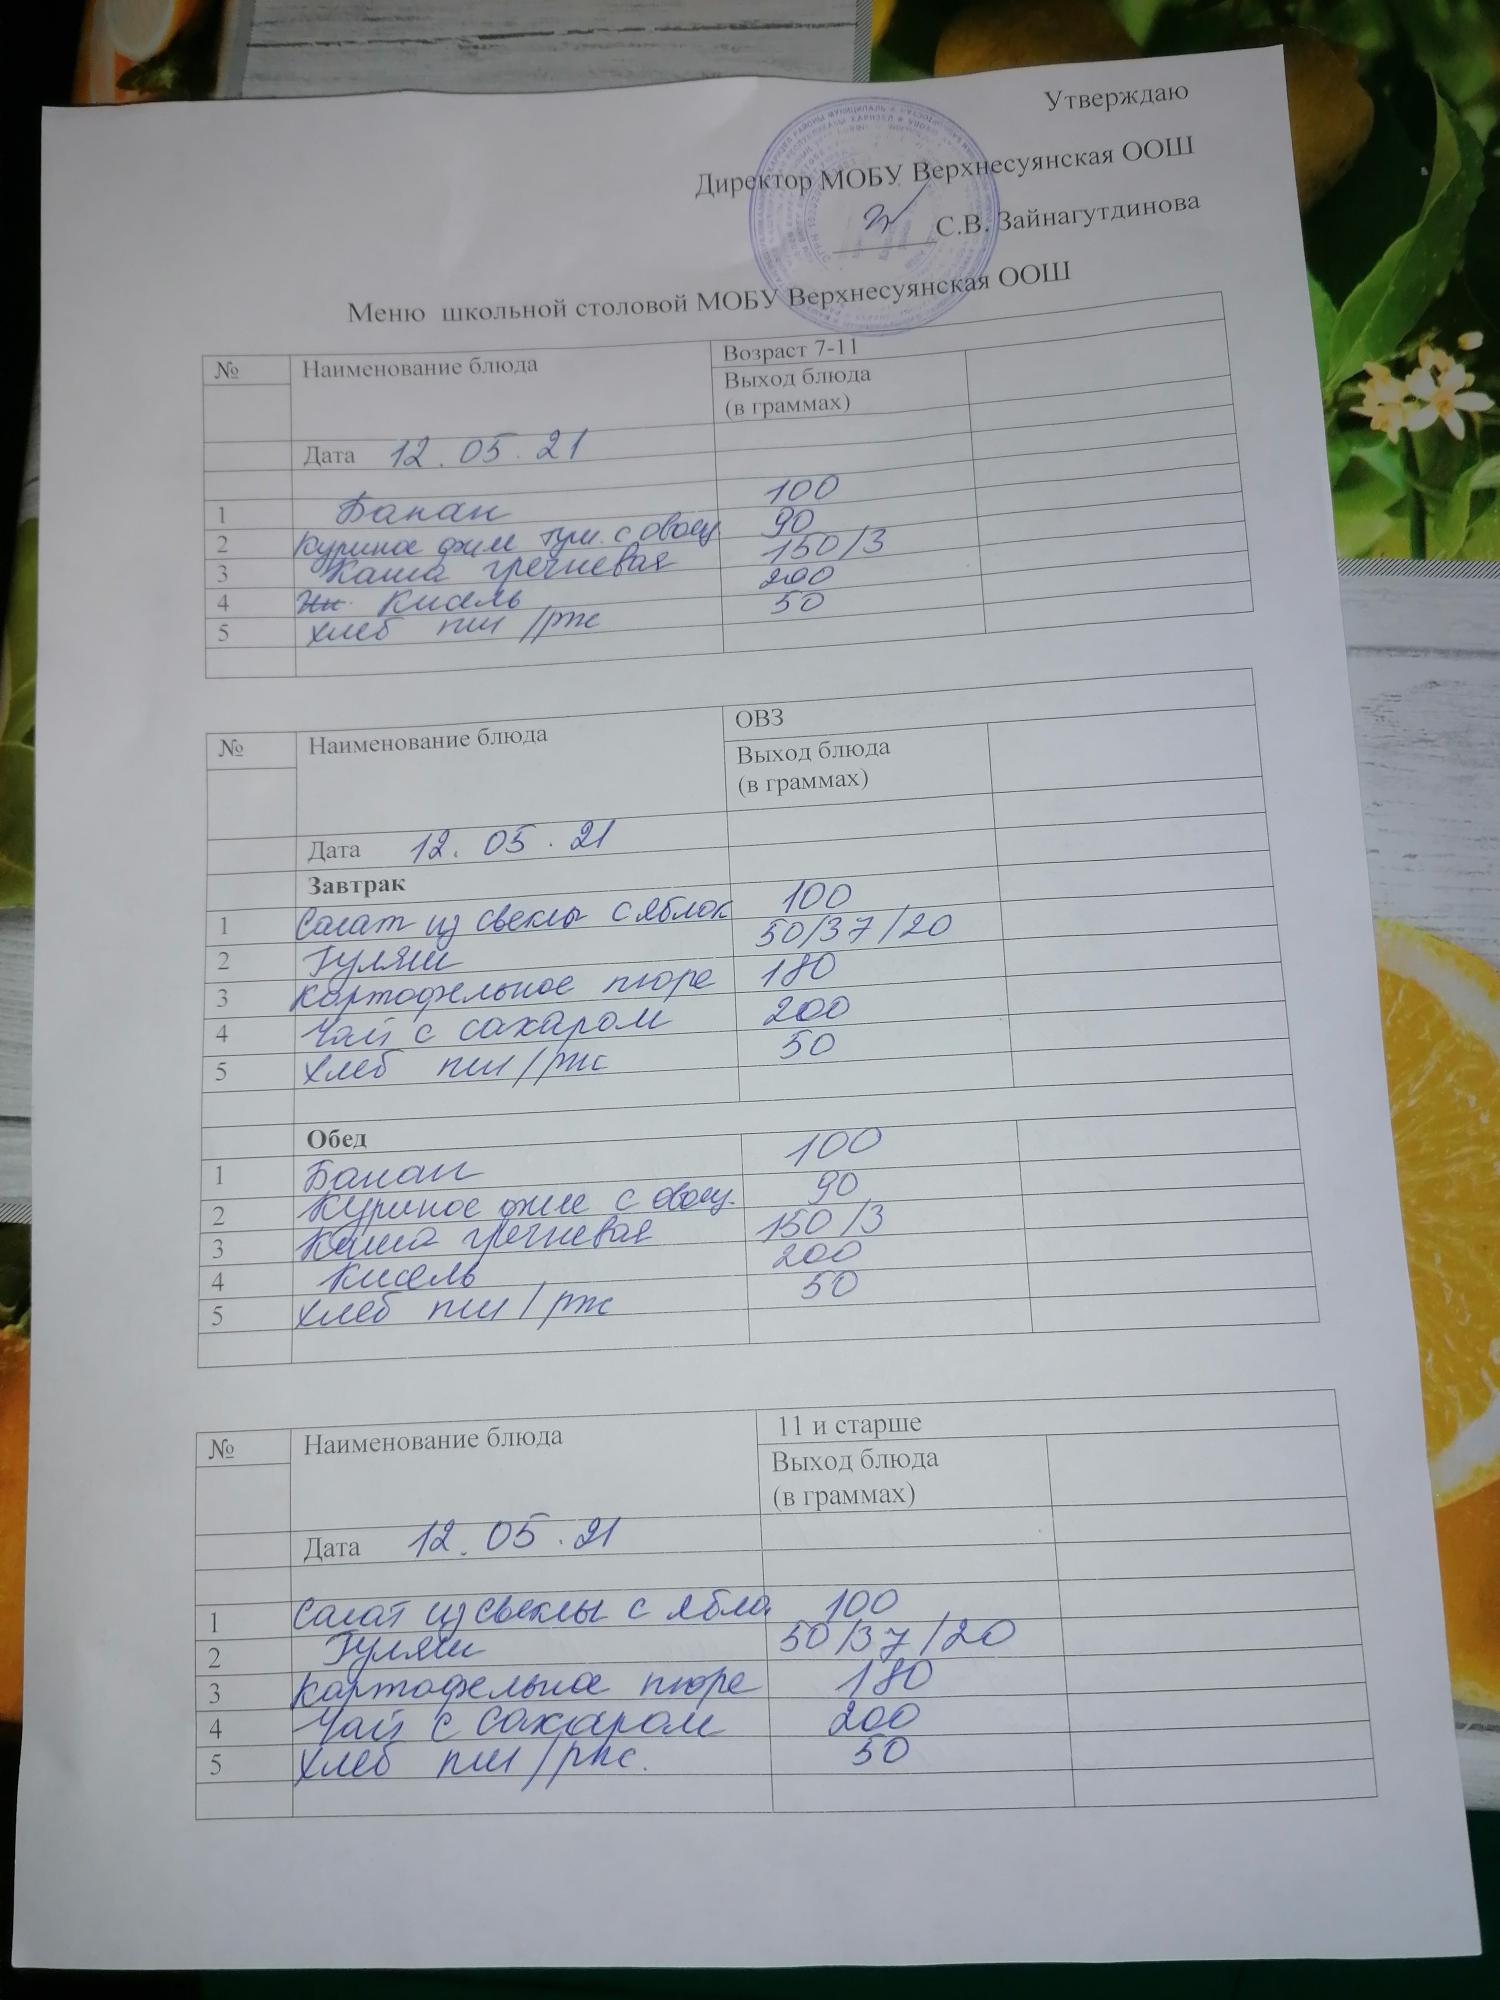 Утверждаю
Директор МОБУ Верхнесуянская ООШ
С.В. Зайнагутдинова
Меню школьной столовой МОБУ Верхнесуянская ООШ
№ Наименование блюда Возраст 7-11
Выход блюда
(в граммах)
Дата 12.05.21
1 Банан 100
2 Куриное филе туш. с овощ. 90
3 Каша гречневая 150/3
4 Кисель 200
5 Хлеб пш/рж 50
№ Наименование блюда ОВЗ
Выход блюда
(в граммах)
Дата 12.05.21
Завтрак
1 Салат из свеклы с яблок 100
2 Гуляш 50/37/20
3 Картофельное пюре 180
4 Чай с сахаром 200
5 Хлеб пш/рж 50
Обед
1 Банан 100
2 Куриное филе с овощ. 90
3 Каша гречневая 150/3
4 Кисель 200
5 Хлеб пш/рж 50
№ Наименование блюда 11 и старше
Выход блюда
(в граммах)
Дата 12.05.21
1 Салат из свеклы с ябло. 100
2 Гуляш 50/37/20
3 Картофельное пюре 180
4 Чай с сахаром 200
5 Хлеб пш/рж. 50